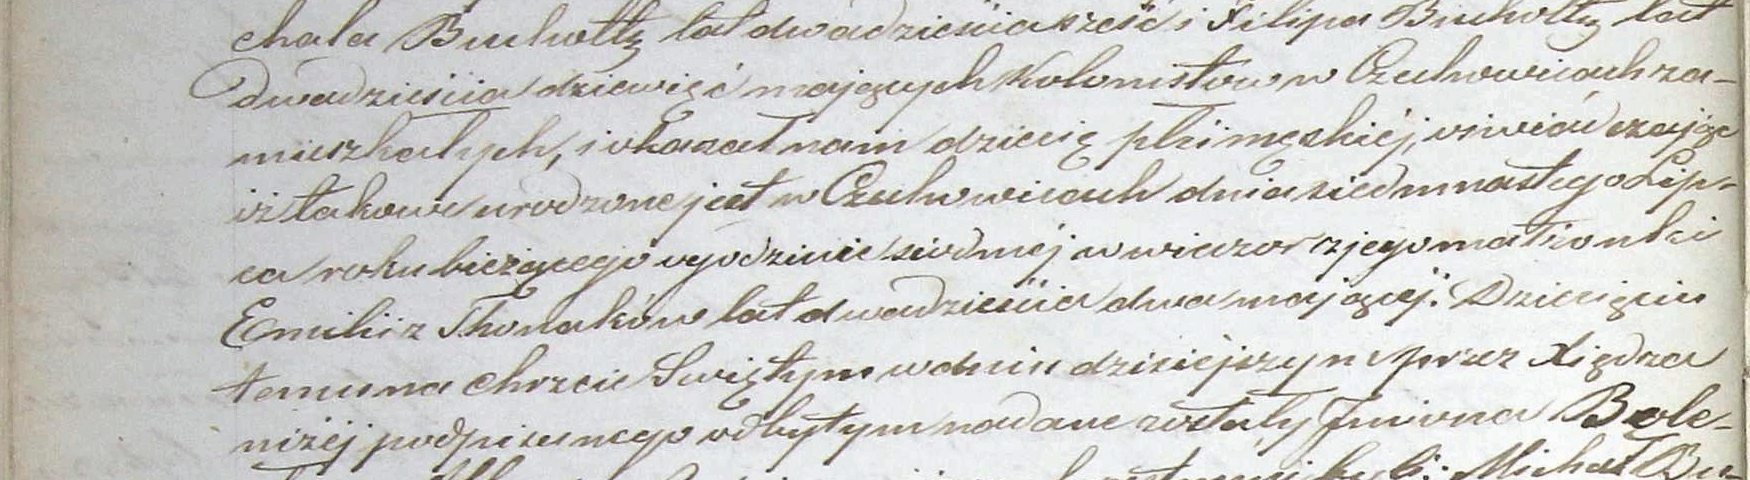 chała Bucholtz lat dwadzieścia sześć i Filipa Bucholtz lat
Dwadzieścia dziewięć mających Kolonistów w Czechowicach za-
mieszkałych, i okazał nam dziecię płci męzkiéj, oświadczając
iż takowe urodzone jest w Czechowicach dnia siedmnastego Lip-
ca roku bieżącego o godzinie siódméj w wieczor z jego małżonki
Emilii z Thonaków lat dwadzieścia dwa mającéj. Dziecięciu
temu na chrzcie Świętym w dniu dzisiejszym przez Xiędza
niżéj podpisanego odbytym nadane zostały Imiona Bole-
Michał Bu-